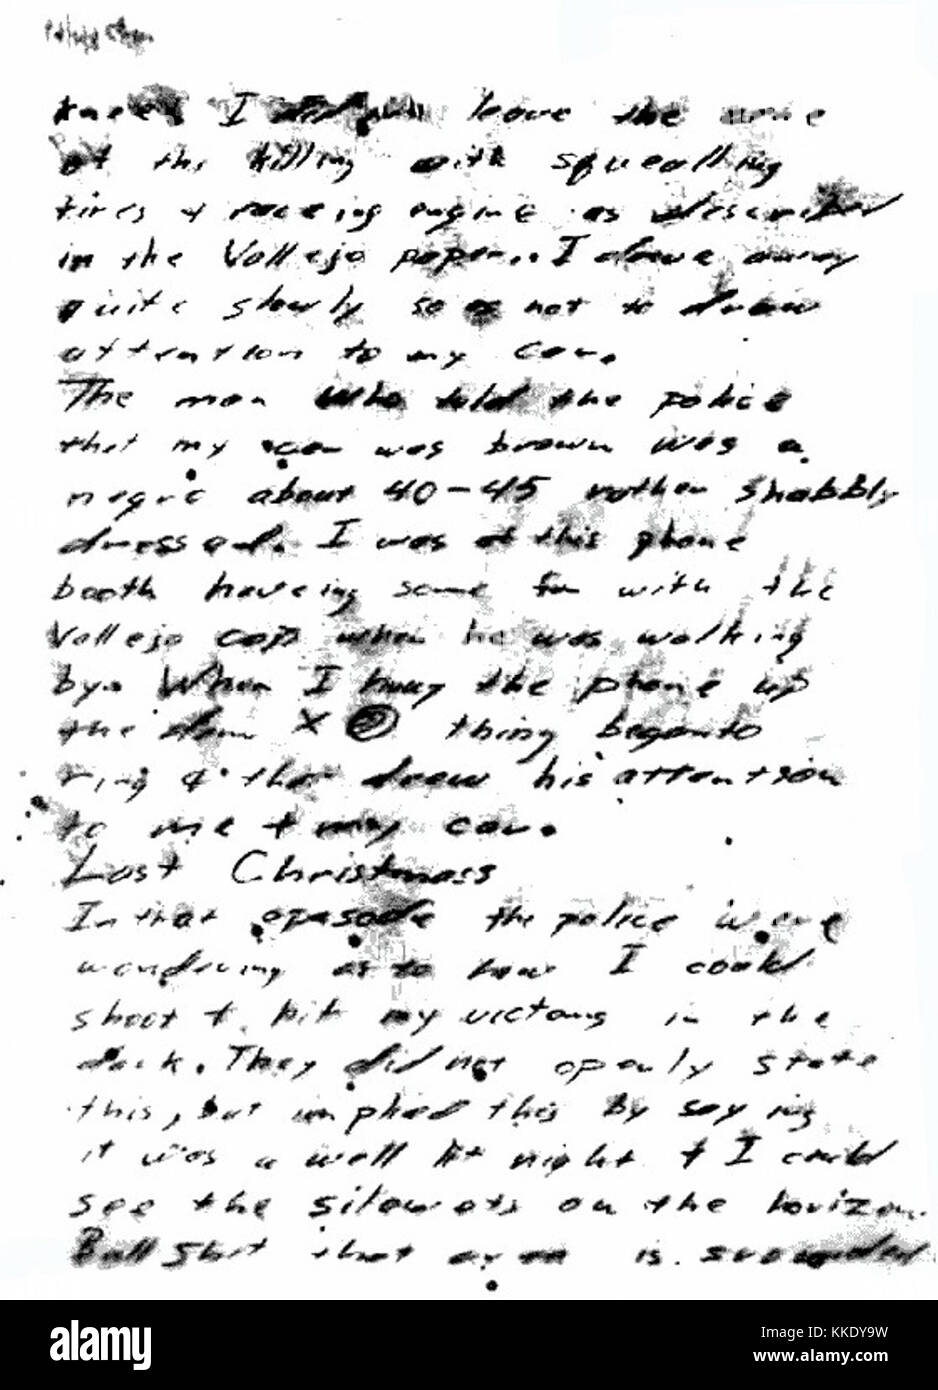 knee. I did not leave the scene
of the killing with squealling
tires + raceing engine as described
in the Vallejo paper.. I drove away
quite slowly so as not to draw
attention to my car.
The man who told the police
that my car was brown was a
negro about 40-45 rather shabbly
dressed. I was at this phone
booth haveing some fun with the
Vallejo cop when he was walking
by. When I hung the phone up
the dam X @ thing began to
ring & that drew his attention
to me + my car.
Last Christmass
In that epasode the police were
wondering as to how I could
shoot + hit my victoms in the
dark. They did not openly state
this, but implied this by saying
it was a well lit night + I could
see the silowets on the horizon.
Bull Shit that area is srounded
alamy
Image ID: KKDY9W
www.alamy.com